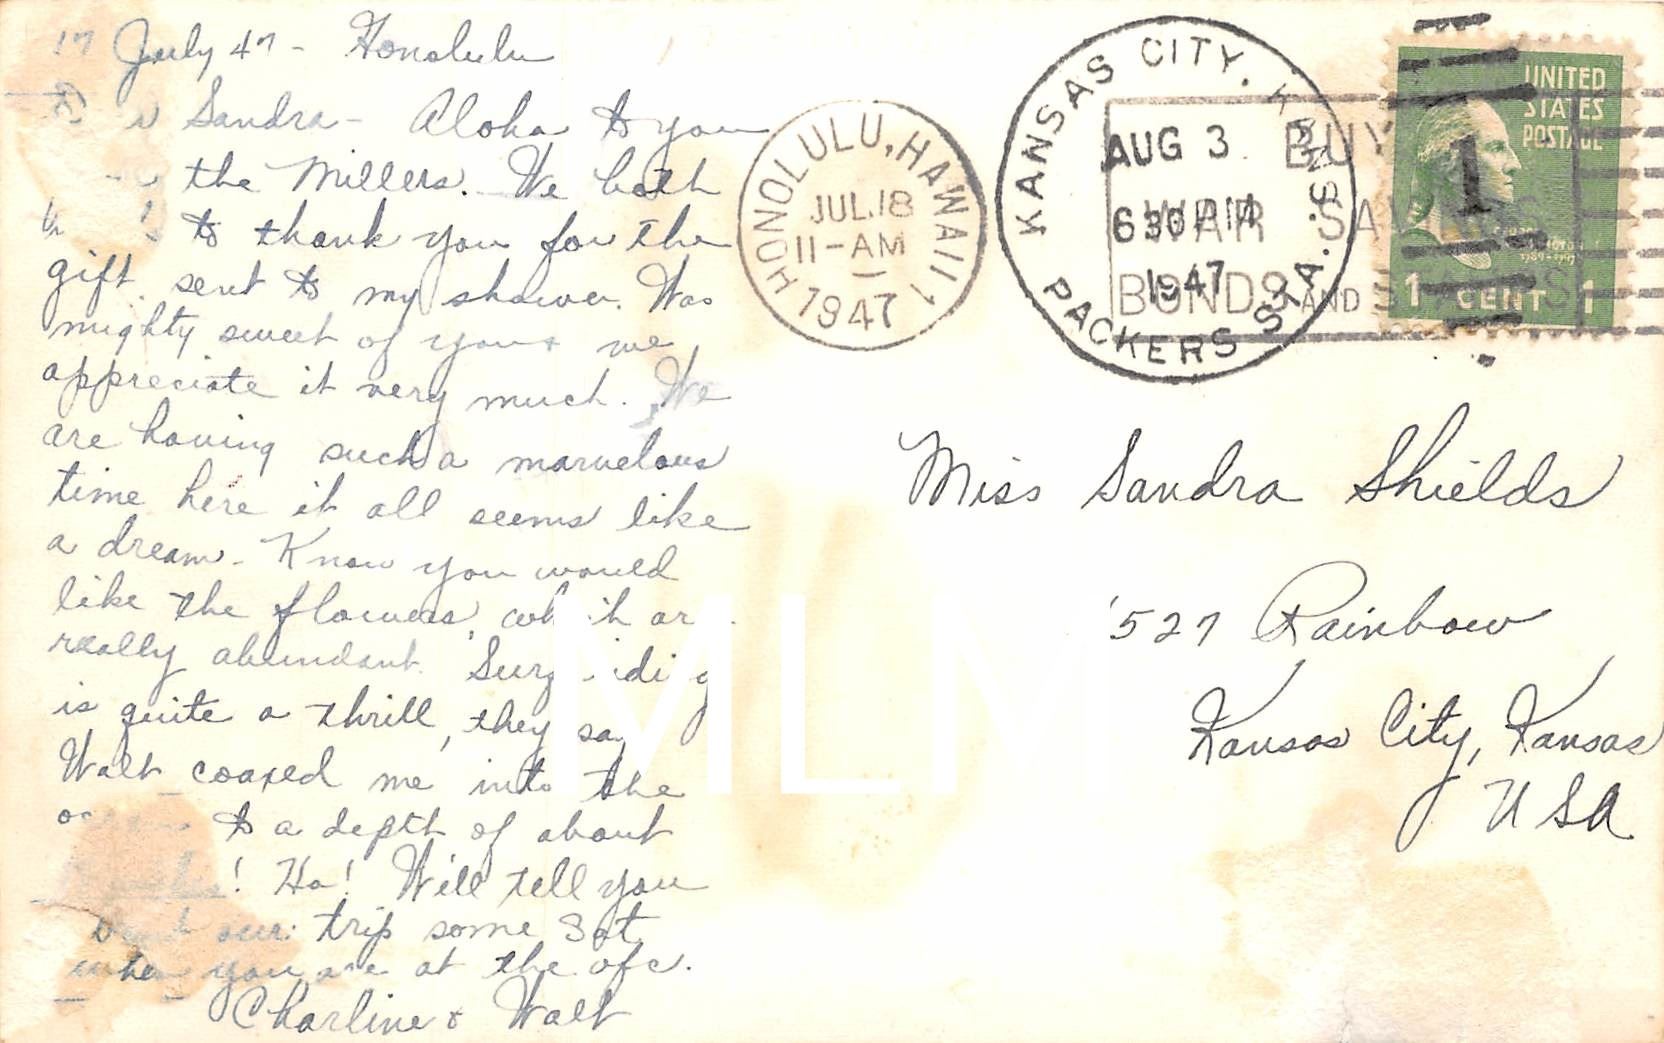 17 July 47 - Honolulu
Sandra - Aloha to you
the Millers. We both
to thank you for the
gift sent to my shower. Was
mighty sweet of you & we
appreciate it very much. We
are having such a marvelous
time here it all seems like
a dream - Know you would
like the flowers, which are
really abundant. Surf riding
is quite a thrill, they say
Walt coaxed me into the
to a depth of about
! Ha! Will tell you
about our trip some Sat.
when you are at the ofc.
Charline & Walt
HONOLULU, HAWAII 1
JUL 18
11-AM
1947
KANSAS CITY, KANS.
AUG 3
630 PM
1947
PACKERS STA.
BUY
WAR SAVINGS
BONDS AND STAMPS
UNITED
STATES
POSTAGE
1
1 CENT 1
Miss Sandra Shields
527 Rainbow
Kansas City, Kansas
USA
MLM